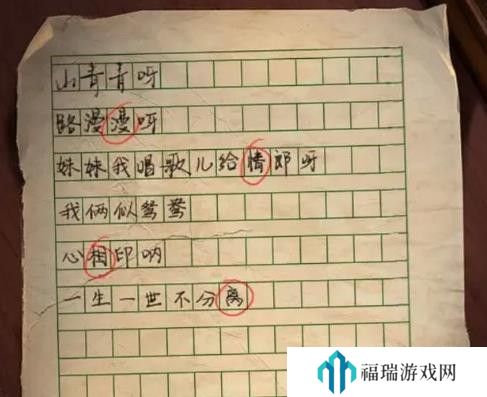 山青青呀
路漫漫呀
妹妹我唱歌儿给情郎呀
我俩似鸳鸯
心相印呐
一生一世不分离
福瑞游戏网